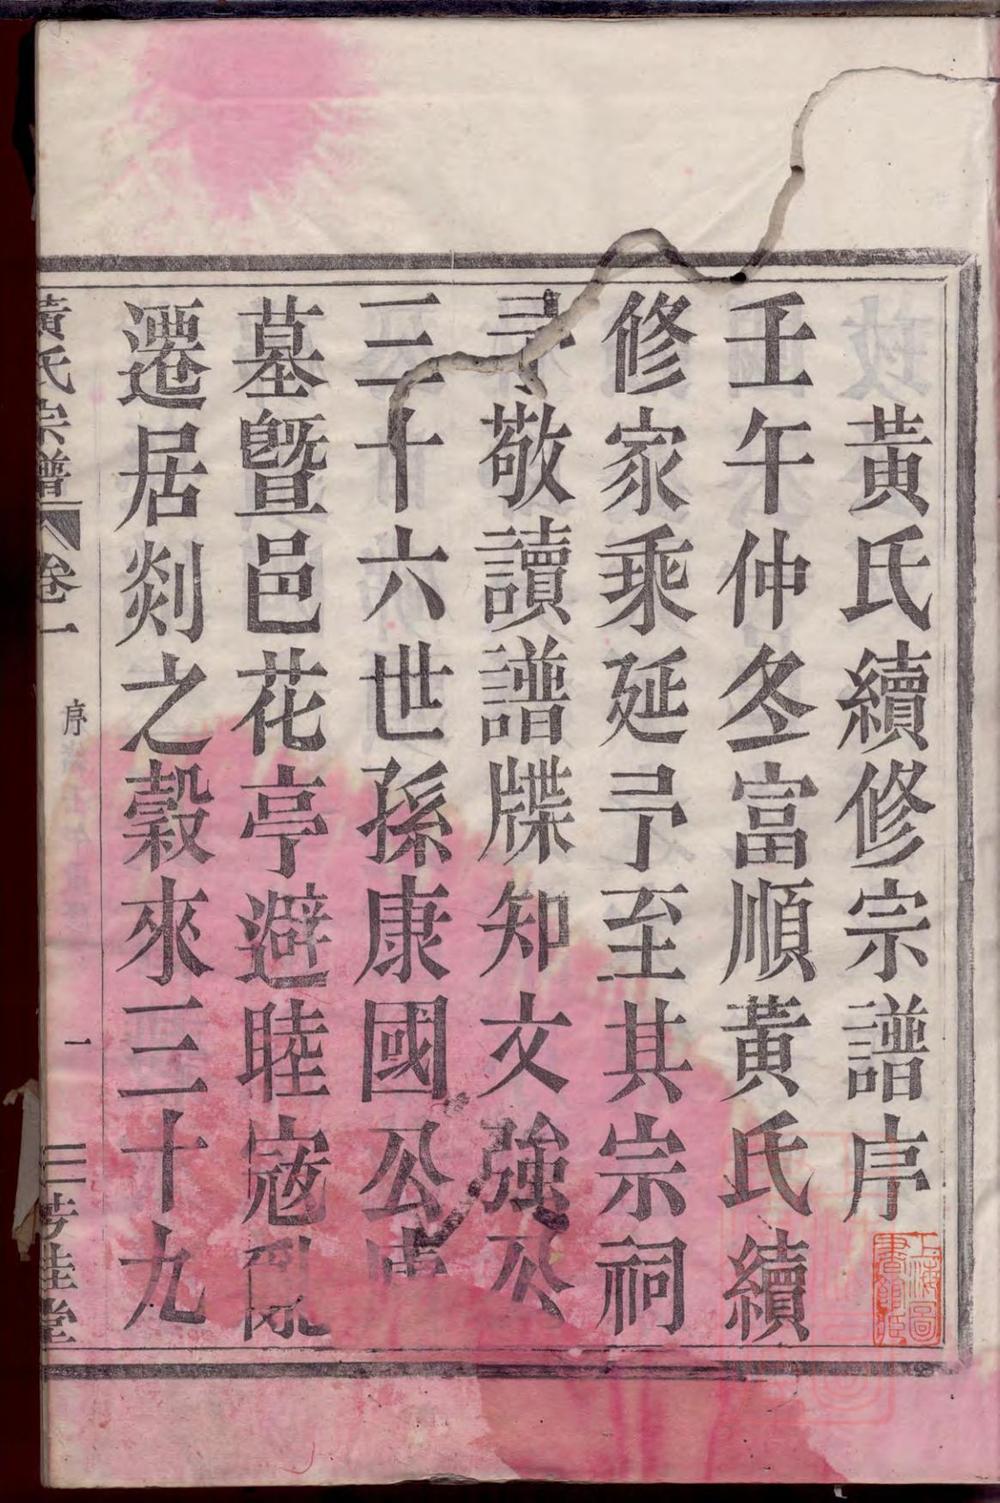 黃氏續修宗譜序
壬午仲冬富順黃氏續
修家乘延予至其宗祠
予敬讀譜牒知文強公
三十六世孫康國公
墓暨邑花亭避睦寇亂
遷居剡之穀來三十九
黃氏宗譜 卷一
序
一
三芳桂堂
上海圖
書館藏